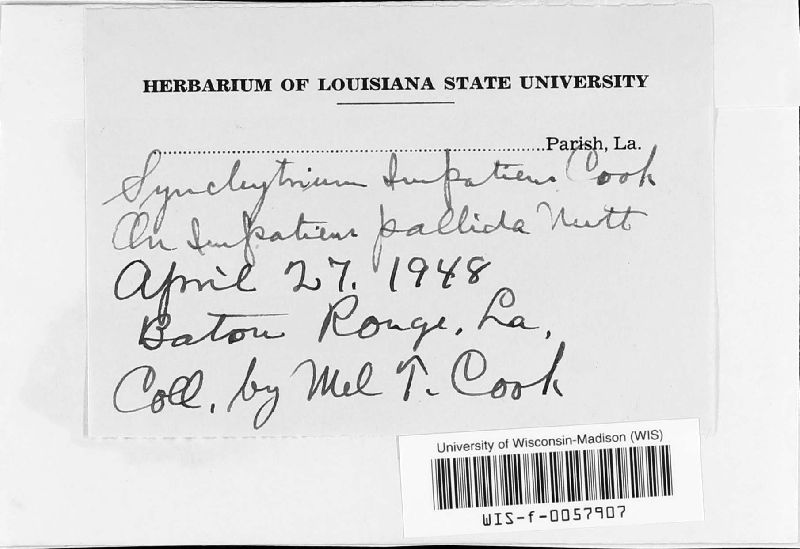 HERBARIUM OF LOUISIANA STATE UNIVERSITY
Parish, La.
Synchytrium Impatiens Cook
On Impatiens pallida Nutt
April 27. 1948
Baton Rouge, La,
Coll. by Mel T. Cook
University of Wisconsin-Madison (WIS)
WIS-f-0057907